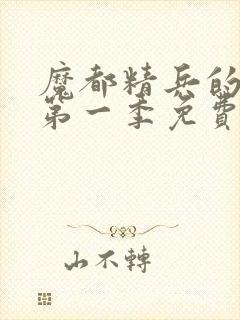 魔都精兵的
第一季免費
山不轉